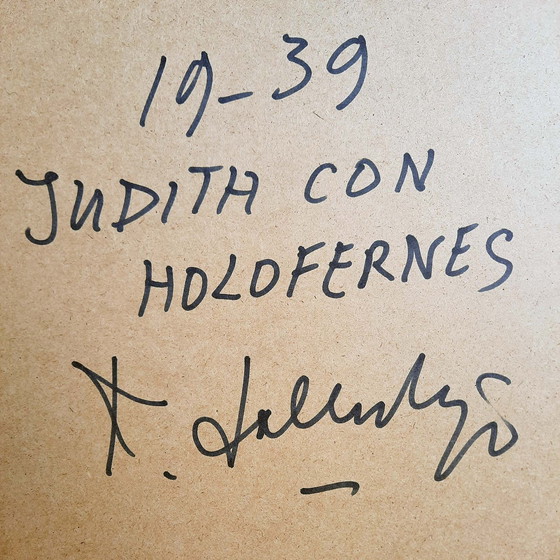 19-39
JUDITH CON
HOLOFERNES